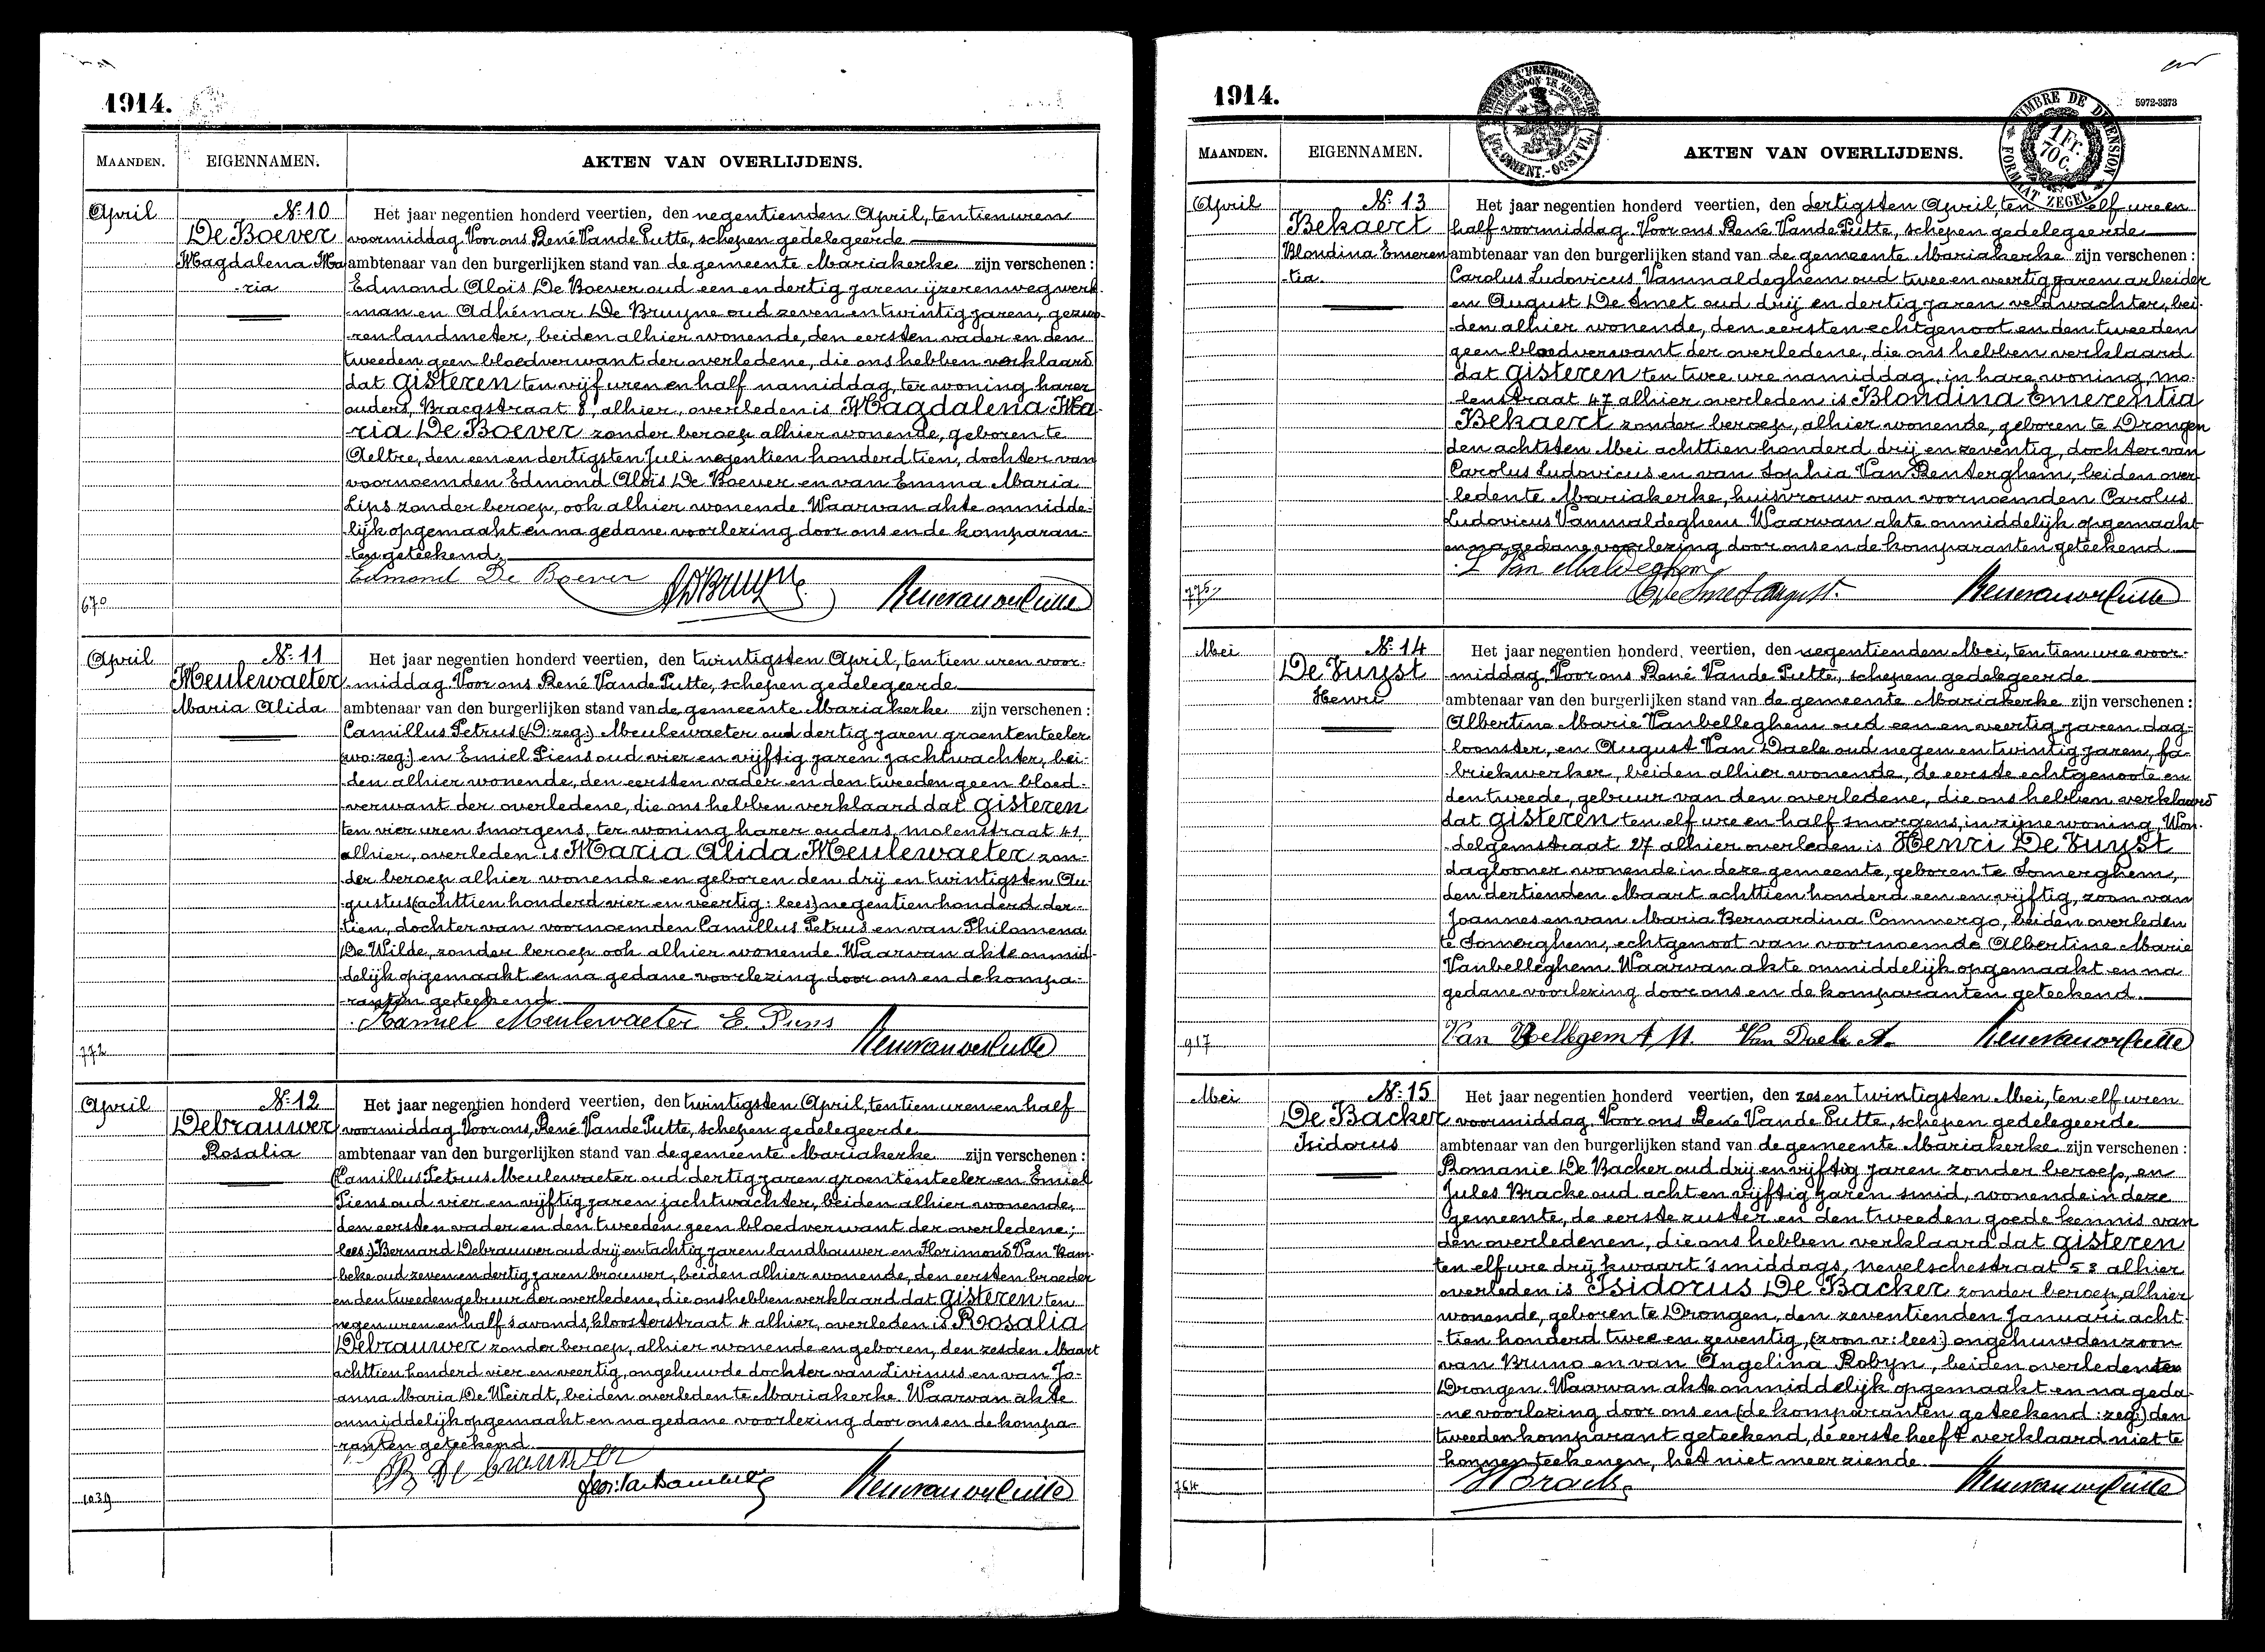 1914.
MAANDEN.
EIGENNAMEN.
AKTEN VAN OVERLIJDENS.
April
Nr 10
De Boever
Magdalena Ma
-ria
Het jaar negentien honderd veertien, den negentienden April, ten tien uren
voormiddag. Voor ons René Vande Putte, schepen gedelegeerde
ambtenaar van den burgerlijken stand van de gemeente Mariakerke zijn verschenen:
Edmond Alois De Boever oud een en dertig jaren ijzerenwegwerk-
-man en Adhémar De Bruyne oud zeven en twintig jaren, gezwo-
-ren landmeter, beiden alhier wonende, den eersten vader en den
tweeden geen bloedverwant der overledene, die ons hebben verklaard
dat gisteren ten vijf uren en half namiddag, ter woning harer
ouders, Bracqstraat 8, alhier, overleden is Magdalena Ma-
ria De Boever zonder beroep alhier wonende, geboren te
Aeltre, den een en dertigsten Juli negentien honderd tien, dochter van
voornoemden Edmond Alois De Boever en van Emma Maria
Lips zonder beroep, ook alhier wonende. Waarvan akte onmidde-
lijk opgemaakt en na gedane voorlezing door ons en de komparan-
-ten geteekend.
Edmond De Boever
ADBruyne
Renévandeputte
670
April
Nr 11
Meulewaeter
Maria Alida
Het jaar negentien honderd veertien, den twintigsten April, ten tien uren voor-
-middag. Voor ons René Vande Putte, schepen gedelegeerde
ambtenaar van den burgerlijken stand van de gemeente Mariakerke zijn verschenen:
Camillus Petrus (D: zeg:) Meulewaeter oud dertig jaren groententeeler
(wo: zeg:) en Emiel Piens oud vier en vijftig jaren jachtwachter, bei-
-den alhier wonende, den eersten vader en den tweeden geen bloed-
-verwant der overledene, die ons hebben verklaard dat gisteren
ten vier uren smorgens, ter woning harer ouders, molenstraat 41,
alhier, overleden is Maria Alida Meulewaeter zon-
-der beroep alhier wonende en geboren den drij en twintigsten Au-
-gustus (achttien honderd vier en veertig: lees) negentien honderd der-
-tien, dochter van voornoemden Camillus Petrus en van Philomena
De Wilde, zonder beroep ook alhier wonende. Waarvan akte onmid-
-delijk opgemaakt en na gedane voorlezing door ons en de kompa-
-ranten geteekend.
Kamiel Meulewaeter E. Piens
Renévandeputte
772
April
Nr 12
Debrauwer
Rosalia
Het jaar negentien honderd veertien, den twintigsten April, ten tien uren en half
voormiddag. Voor ons, René Vande Putte, schepen gedelegeerde
ambtenaar van den burgerlijken stand van de gemeente Mariakerke zijn verschenen:
(Camillus Petrus Meulewaeter oud dertig jaren groententeeler en Emiel
Piens oud vier en vijftig jaren jachtwachter, beiden alhier wonende,
den eersten vader en den tweeden geen bloedverwant der overledene;
lees:) Bernard Debrauwer oud drij en tachtig jaren landbouwer en Florimond Van Kam-
beke oud zeven en dertig jaren brouwer, beiden alhier wonende, den eersten broeder
en den tweeden gebuur der overledene, die ons hebben verklaard dat gisteren ten
negen uren en half savonds, kloosterstraat 4 alhier, overleden is Rosalia
Debrauwer zonder beroep, alhier wonende en geboren, den zesden Maart
achttien honderd vier en veertig, ongehuwde dochter van Livinus en van Jo-
-anna Maria De Weirdt, beiden overleden te Mariakerke. Waarvan akte
onmiddelijk opgemaakt en na gedane voorlezing door ons en de kompa-
-ranten geteekend.
B De brauwer
Renévandeputte
1039
1914.
5972-3373
TIMBRE DE DIMENSION
1 Fr. 70 C.
FORMAAT ZEGEL
MAANDEN.
EIGENNAMEN.
AKTEN VAN OVERLIJDENS.
April
Nr 13
Bekaert
Blondina Emeren
-tia.
Het jaar negentien honderd veertien, den dertigsten April, ten elf ure en
half voormiddag. Voor ons René Vande Putte, schepen gedelegeerde
ambtenaar van den burgerlijken stand van de gemeente Mariakerke zijn verschenen:
Carolus Ludovicus Vanmaldeghem oud twee en veertig jaren arbeider
en August De Smet oud drij en dertig jaren veldwachter, bei-
-den alhier wonende, den eersten echtgenoot en den tweeden
geen bloedverwant der overledene, die ons hebben verklaard
dat gisteren ten twee ure namiddag, in hare woning, mo-
-lenstraat 47 alhier overleden is Blondina Emerentia
Bekaert zonder beroep, alhier wonende, geboren te Drongen
den achtsten Mei achttien honderd drij en zeventig, dochter van
Carolus Ludovicus en van Sophia Van Renterghem, beiden over-
-ledente Mariakerke, huisvrouw van voornoemden Carolus
Ludovicus Vanmaldeghem. Waarvan akte onmiddelijk opgemaakt
en na gedane voorlezing door ons en de komparanten geteekend.
L Van Maldeghem
De Smet August.
Renévandeputte
775
Mei
Nr 14
De Vuyst
Henri
Het jaar negentien honderd veertien, den negentienden Mei, ten tien ure voor-
-middag. Voor ons René Vande Putte, schepen gedelegeerde
ambtenaar van den burgerlijken stand van de gemeente Mariakerke zijn verschenen:
Albertine Marie Vanbelleghem oud een en veertig jaren dag-
-loonster, en August Van Daele oud negen en twintig jaren, fa-
-briekwerker, beiden alhier wonende, de eerste echtgenoote en
den tweede, gebuur van den overledene, die ons hebben verklaard
dat gisteren ten elf ure en half smorgens, in zijne woning, Won-
-delgemstraat 27 alhier overleden is Henri De Vuyst
daglooner wonende in deze gemeente, geboren te Somerghem,
den dertienden Maart achttien honderd een en vijftig, zoon van
Joannes en van Maria Bernardina Commergo, beiden overleden
te Somerghem, echtgenoot van voornoemde Albertine Marie
Vanbelleghem. Waarvan akte onmiddelijk opgemaakt en na
gedane voorlezing door ons en de komparanten geteekend.
Van Bellegem A M. Van Daele A.
Renévandeputte
917
Mei
Nr 15
De Backer
Isidorus
Het jaar negentien honderd veertien, den zes en twintigsten Mei, ten elf uren
voormiddag. Voor ons René Vande Putte, schepen gedelegeerde
ambtenaar van den burgerlijken stand van de gemeente Mariakerke zijn verschenen:
Romanie De Backer oud drij en vijftig jaren zonder beroep, en
Jules Bracke oud acht en vijftig jaren smid, wonende in deze
gemeente, de eerste zuster en den tweeden goede kennis van
den overledenen, die ons hebben verklaard dat gisteren
ten elf ure drij kwaart 's middags, nevelschestraat 53 alhier
overleden is Isidorus De Backer zonder beroep, alhier
wonende, geboren te Drongen, den zeventienden Januari acht-
-tien honderd twee en zeventig, (zoon v: lees:) ongehuwden zoon
van Bruno en van Angelina Robyn, beiden overleden te
Drongen. Waarvan akte onmiddelijk opgemaakt en na geda-
-ne voorlezing door ons en (de komparanten geteekend: zeg:) den
tweeden komparant geteekend, de eerste heeft verklaard niet te
konnen teekenen, het niet meer ziende.
JBracke
Renévandeputte
764